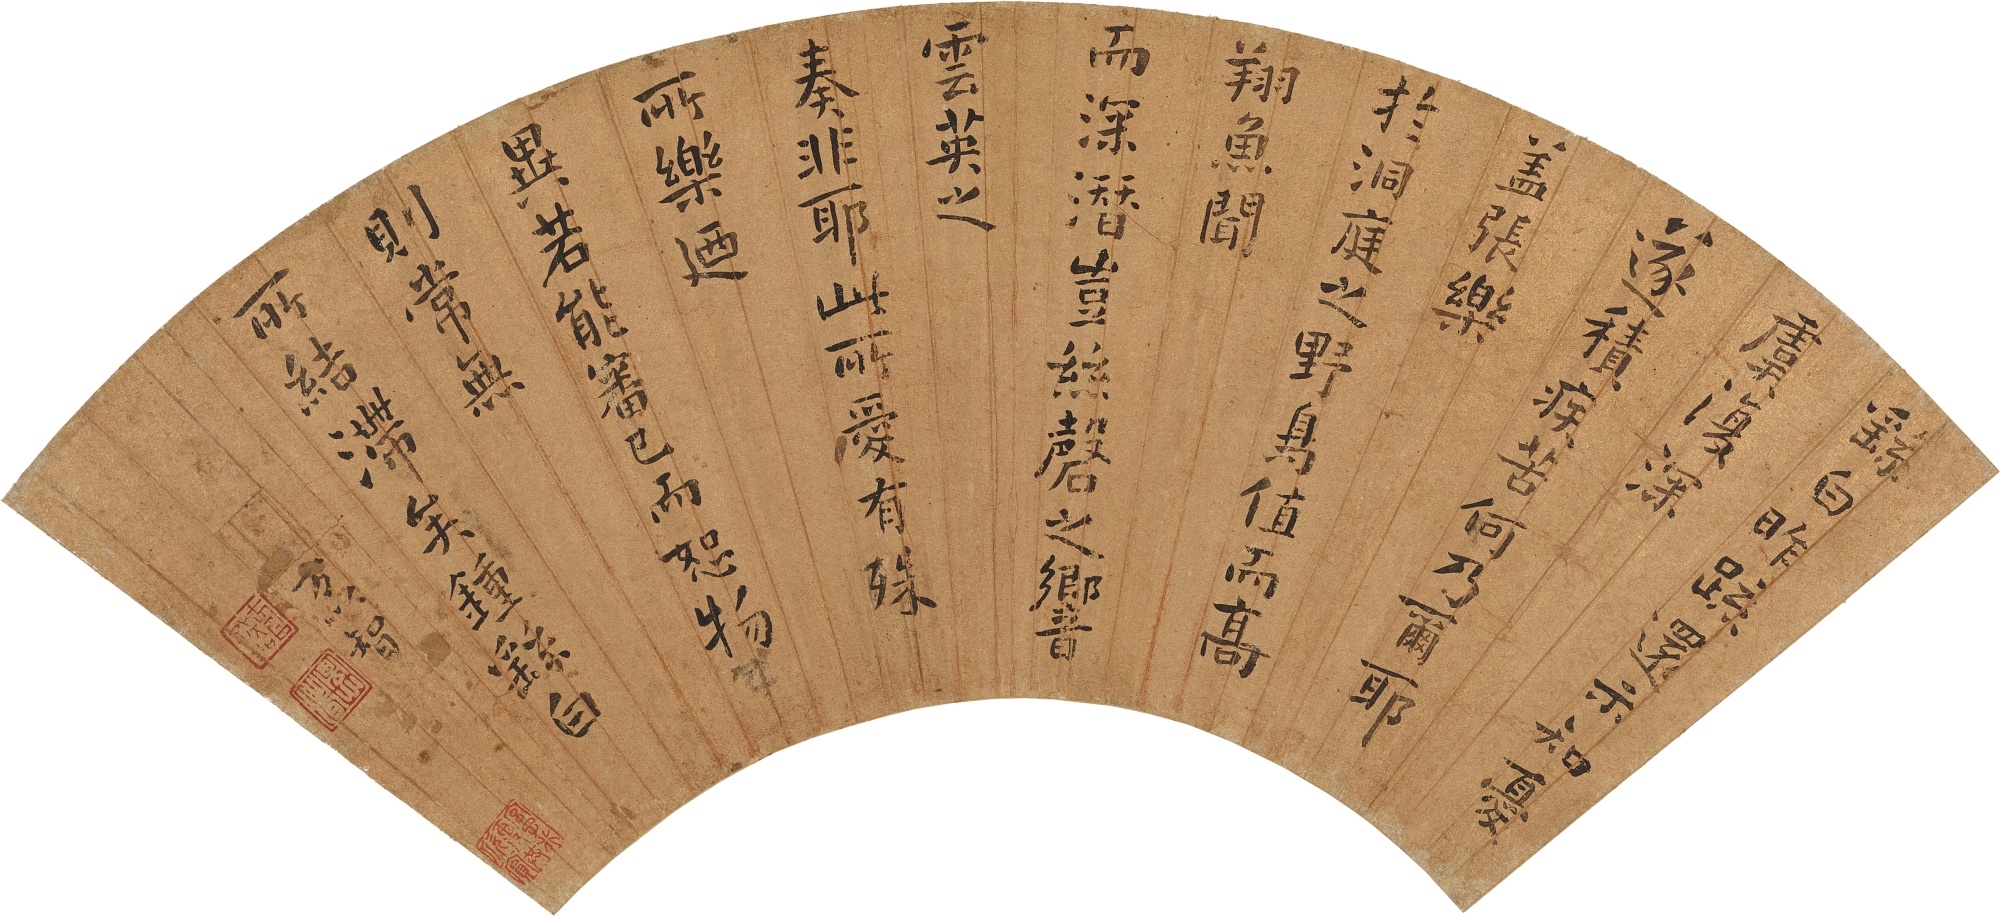 繇白昨疏還示知憂
虞復深
遂積疾苦何乃爾耶
盖張樂
於洞庭之野鳥值而高
翔魚聞
而深潛豈絲磬之響
雲英之
奏非耶此所愛有殊
所樂迺
異若能審己而恕物
則常無
所結滯矣鍾繇白
方以智